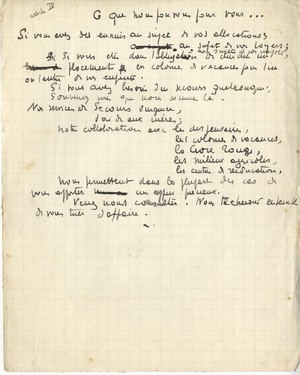 article IV
Ce que nous pouvons pour vous...
Si vous avez des ennuis au sujet de vos allocations,
au sujet de vos loyers;
au sujet de vos impôts
Si vous êtes dans l'obligation de
placement en colonie de vacances pour l'un
ou l'autre de vos enfants.
Si vous avez besoin du secours quelconque;
que nous sommes là.
Nos services de Secours d'urgence,
d'aide aux mères;
notre collaboration avec les dispensaires,
les colonies de vacances,
la Croix Rouge,
les milieux agricoles,
les centres de rééducation,
nous permettent dans la plupart des cas de
vous apporter un appui précieux.
Venez nous consulter. Nous tâcherons ensemble
de vous tirer d'affaire.